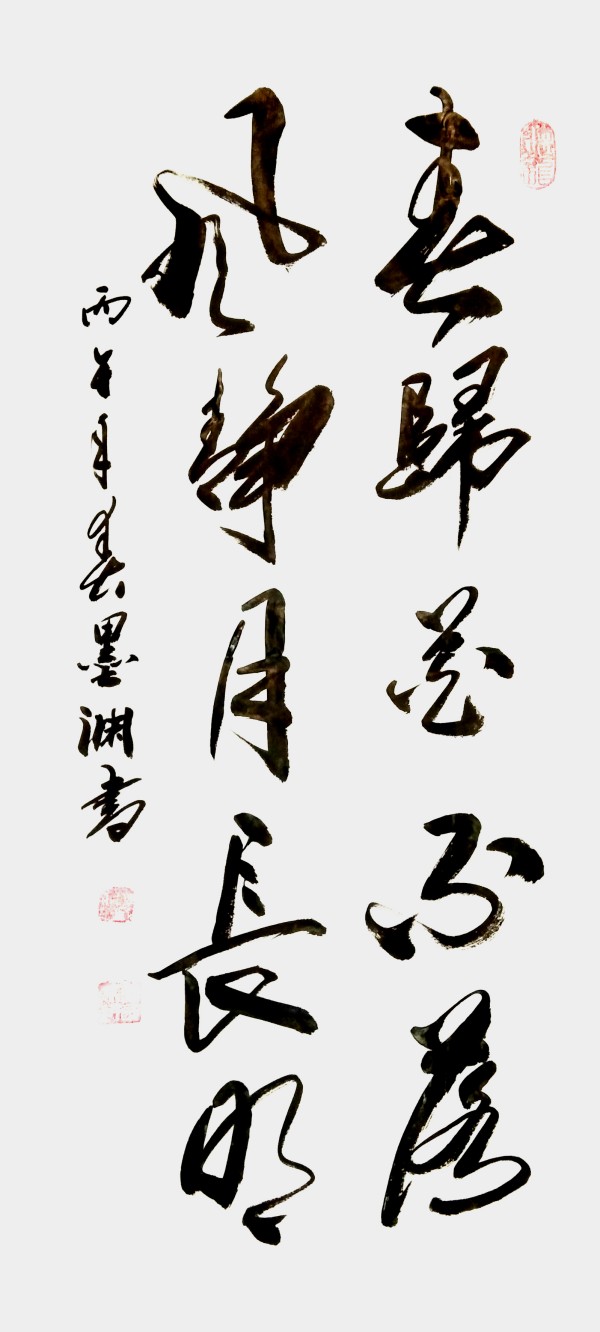 春歸花不落
風静月長明
丙午年春墨渊書